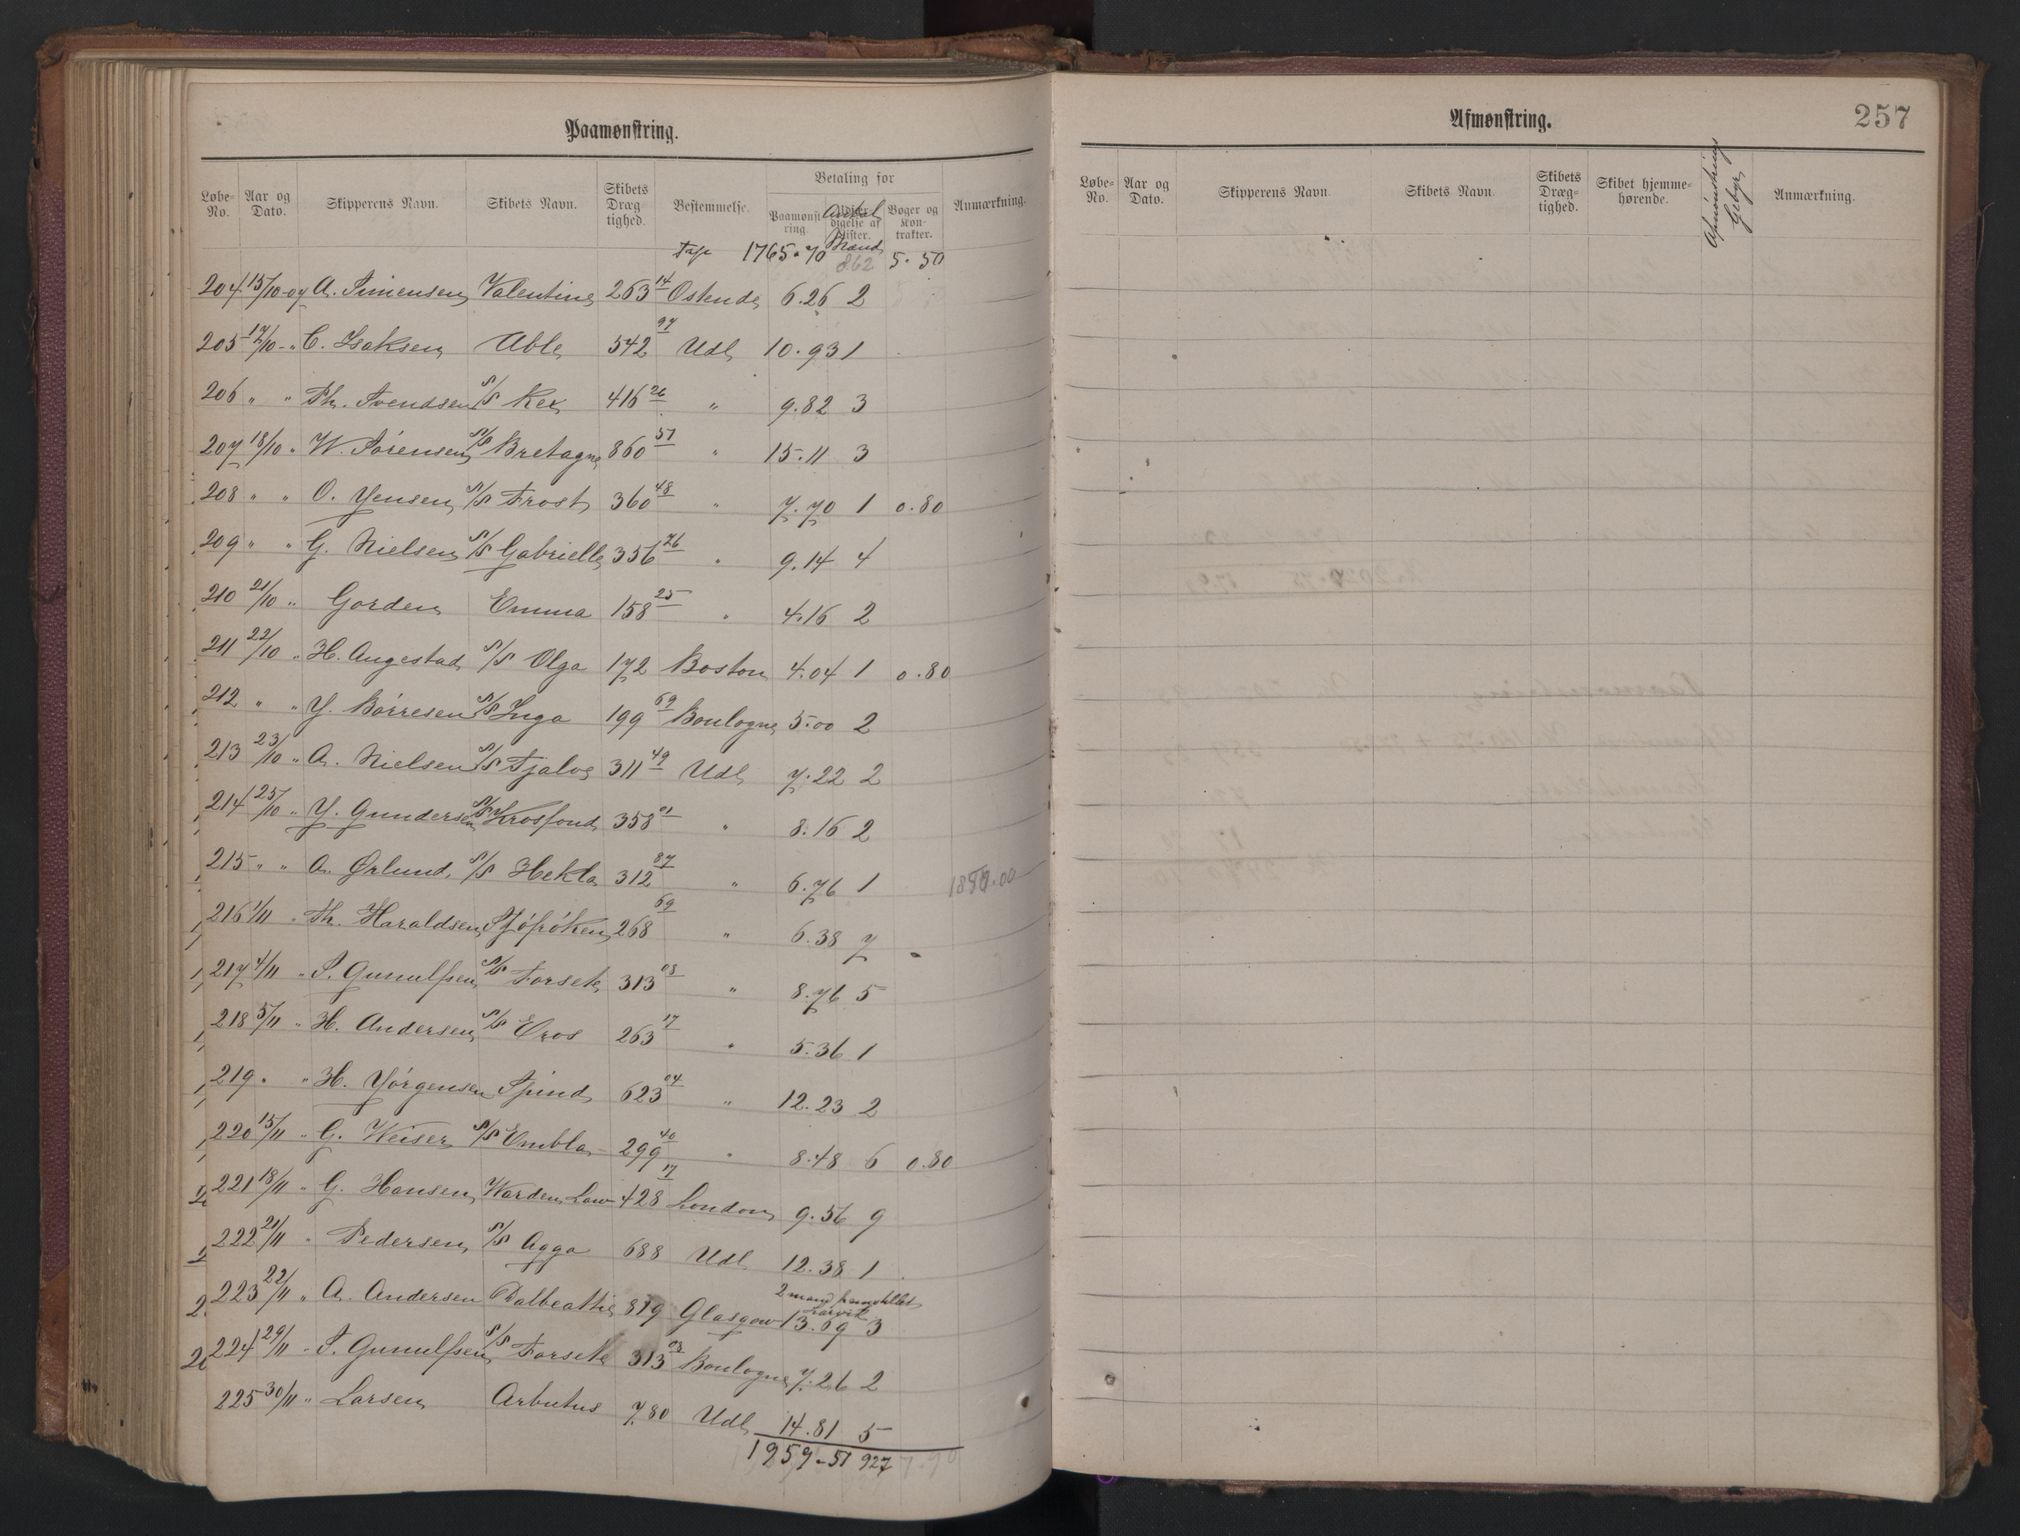 Paamønstring.
Løbe-No. Aar og Dato. Skipperens Navn. Skibets Navn. Skibets Dræg-tighed. Bestemmelse. Betaling for Paamønst-ring. Antal Mand Bøger og Kon-trakter. Anmærkning.
1765.70 862 5.50
204 15/10 04 A. Simensen Valentine 263 14 Ostende 6.26 2
205 17/10 " C. Isaksen Able 542 97 Udl 10.93 1
206 " " Th. Svendsen S/S Rex 416 26 " 9.82 3
207 18/10 " W. Sørensen S/S Bretagne 860 51 " 15.11 3
208 " " O. Jensen S/S Frost 360 48 " 7.70 1 0.80
209 " " G. Nielsen S/S Gabrielle 356 76 " 9.14 4
210 21/10 " Gorden Emma 158 25 " 4.16 2
211 22/10 " H. Angestad S/S Olga 172 Boston 4.04 1 0.80
212 " " J. Børresen S/S Inga 199 69 Boulogne 5.00 2
213 23/10 " A. Nielsen S/S Fjalve 311 49 Udl 7.22 2
214 25/10 " J. Gundersen S/S Krosfond 358 01 " 8.16 2
215 " " A. Ørlund S/S Hekla 312 87 " 6.76 1
216 1/11 " Th. Haraldsen Sjöfröken 268 69 " 6.38 7
217 4/11 " S. Gunulfsen S/S Forsete 313 08 " 8.76 5
218 5/11 " H. Andersen S/S Eros 263 17 " 5.36 1
219 " " H. Jörgensen Spind 623 04 " 12.23 2
220 15/11 " G. Weiser S/S Embla 299 40 " 8.48 6 0.80
221 18/11 " G. Hansen Warden Law 428 17 London 9.56 9
222 21/11 " Pedersen S/S Agga 688 Udl 12.38 1
2 mand
223 22/11 " A. Andersen Dalbeattie 819 Glasgow 13.69 3
224 29/11 " S. Gunulfsen S/S Forsete 313 08 Boulogne 7.26 2
225 30/11 " Larsen Arbutus 780 Udl 14.81 5
1959.51 927 7.90
Afmønstring.
257
Løbe-No. Aar og Dato. Skipperens Navn. Skibets Navn. Skibets Dræg-tighed. Skibet hjemme-hørende. Afmönstrings Gebyr Anmærkning.